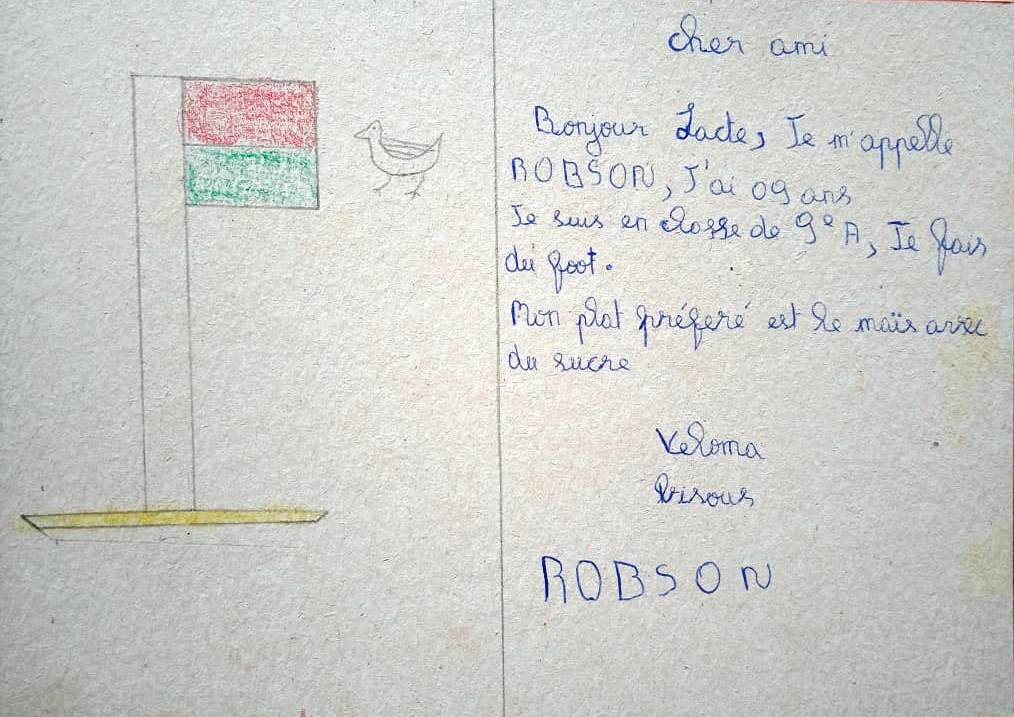 cher ami
Bonjour Lacte, Je m'appelle
ROBSON, J'ai 09 ans
Je suis en classe de 9e A, Je fais
du foot.
Mon plat préferé est le maïs avec
du sucre
Veloma
Bisous
ROBSON